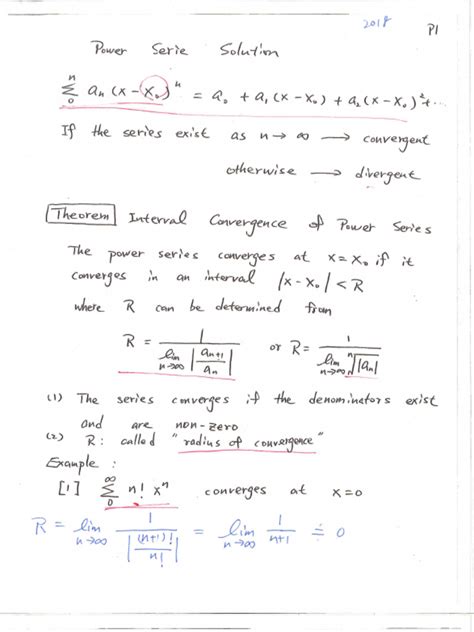 2018 P1
Power Serie Solution
n
Σ aₙ (x - x₀)ⁿ = a₀ + a₁ (x - x₀) + a₂ (x - x₀)² + ...
0
If the series exist as n → ∞ → convergent
otherwise → divergent
Theorem Interval Convergence of Power Series
The power series converges at x = x₀ if it
converges in an interval |x - x₀| < R
where R can be determined from
R = 1 / lim n→∞ |aₙ₊₁ / aₙ| or R = 1 / lim n→∞ ⁿ√|aₙ|
(1) The series converges if the denominators exist
and are non-zero
(2) R: called "radius of convergence"
Example :
[1] ∞ Σ 0 n! xⁿ converges at x=0
R = lim n→∞ 1 / |(n+1)! / n!| = lim n→∞ 1 / n+1 ≐ 0